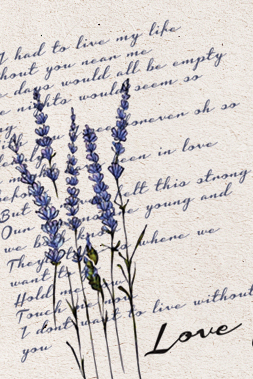 I had to live my life
hout you near me
e days would all be empty
e nights would seem so
forever oh so
been in love
before felt this strong
But
Our young and
we b where we
They
want t
Hold me
Touch now
I dont want to live without
you
Love